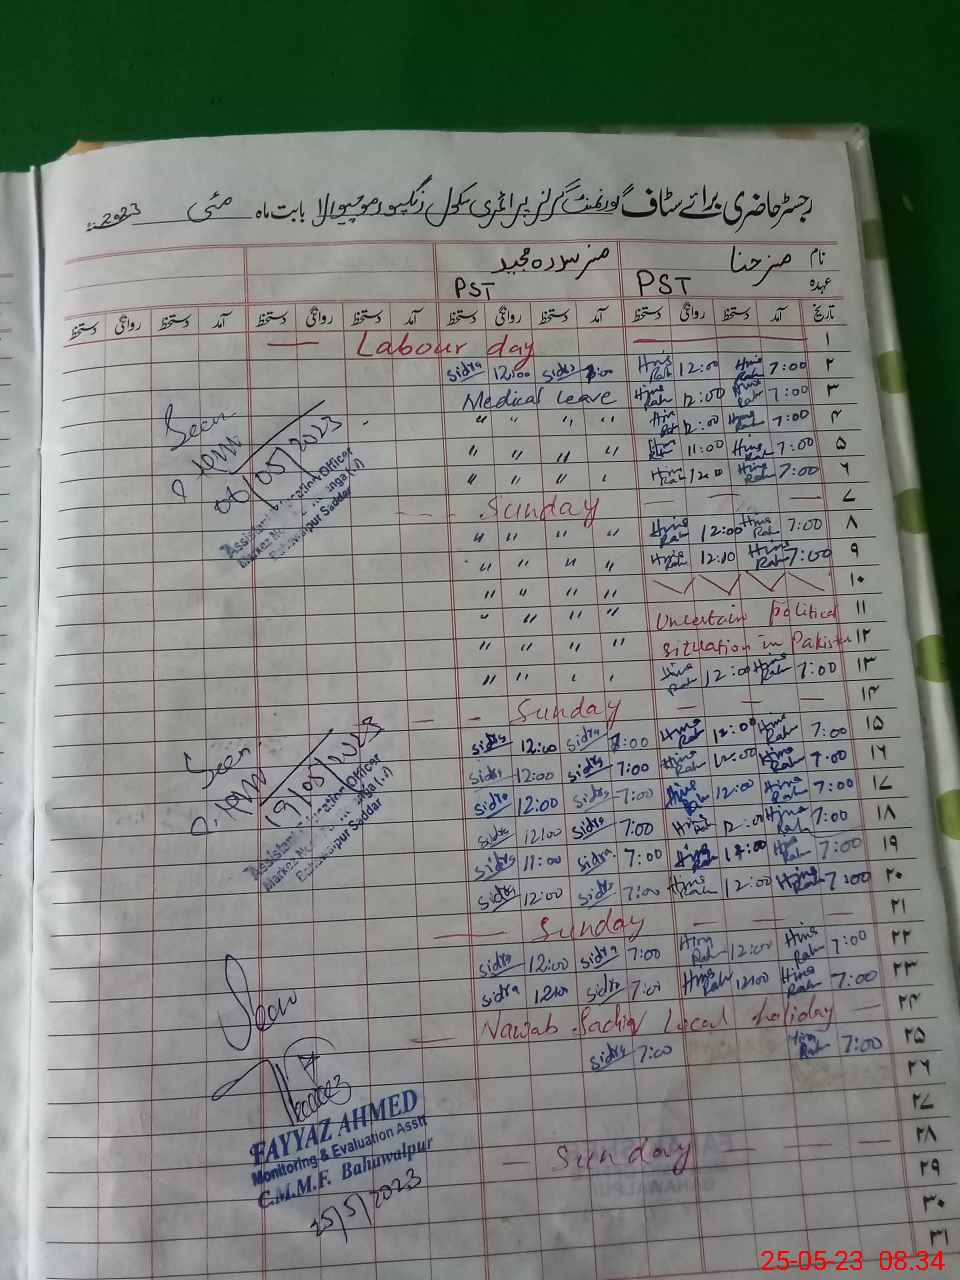 رجسٹر حاضری برائے سٹاف گورنمنٹ گرلز پرائمری سکول رنگپور موچیوالا بابت ماہ مئی 2023
نام مسز حنا مسز سدرہ مجید
عہدہ PST PST
تاریخ آمد دستخط روانگی دستخط آمد دستخط روانگی دستخط آمد دستخط روانگی دستخط آمد دستخط روانگی دستخط
۱ — Labour day —
۲ 7:00 Hina Rah 12:00 Hina Rah 7:00 Sidra 12:00 Sidra
۳ 7:00 Hina Rah 12:00 Hina Rah Medical leave
۴ 7:00 Hina Rah 12:00 Hina Rah " " " "
۵ 7:00 Hina Rah 11:00 Hina Rah " " " "
۶ 7:00 Hina Rah 12:00 Hina Rah " " " "
۷ — — Sunday — — —
۸ 7:00 Hina Rah 12:00 Hina Rah " " " "
۹ 7:00 Hina Rah 12:10 Hina Rah " " " "
۱۰ " " " "
۱۱ Uncertain political " " " "
۱۲ situation in Pakistan " " " "
۱۳ 7:00 Hina Rah 12:00 Hina Rah " " " "
۱۴ — — Sunday — — —
۱۵ 7:00 Hina Rah 12:00 Hina Rah 7:00 Sidra 12:00 Sidra
۱۶ 7:00 Hina Rah 12:00 Hina Rah 7:00 Sidra 12:00 Sidra
۱۷ 7:00 Hina Rah 12:00 Hina Rah 7:00 Sidra 12:00 Sidra
۱۸ 7:00 Hina Rah 12:00 Hina Rah 7:00 Sidra 12:00 Sidra
۱۹ 7:00 Hina Rah 12:00 Hina Rah 7:00 Sidra 11:00 Sidra
۲۰ 7:00 Hina Rah 12:00 Hina Rah 7:00 Sidra 12:00 Sidra
۲۱ — Sunday — — —
۲۲ 7:00 Hina Rah 12:00 Hina Rah 7:00 Sidra 12:00 Sidra
۲۳ 7:00 Hina Rah 12:00 Hina Rah 7:00 Sidra 12:00 Sidra
۲۴ — Nawab Sadiq Local holiday —
۲۵ 7:00 Hina Rah 7:00 Sidra
۲۶
۲۷
۲۸ — Sunday — — —
۲۹
۳۰
۳۱
Seen
06/05/2023
Assistant Education Officer
Bahawalpur Saddar
Seen
19/05/2023
Assistant Education Officer
Bahawalpur Saddar
Seen
FAYYAZ AHMED
Monitoring & Evaluation Asstt
C.M.M.F. Bahawalpur
25/5/2023
25-05-23 08.34